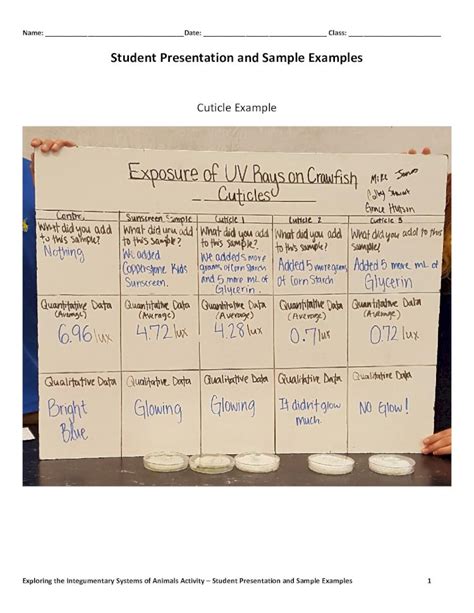 Name: ________ Date: ________ Class: ________
Student Presentation and Sample Examples
Cuticle Example
Exposure of UV Rays on Crawfish
Cuticles
Mike
Grace
Sunscreen Sample Cuticle 1 Cuticle 2 Cuticle 3
What did you add to this sample?
Nothing
What did you add to this Sample?
We added
Copperstone Kids
Sunscreen.
What did you add to this sample?
We added 5 more
grams of Corn Starch
and 5 more mL of
Glycerin.
What did you add to this Sample?
Added 5 more grams
of Corn Starch
What did you add to this sample?
Added 5 more mL of
Glycerin
Quantitative Data Quantitative Data Quantitative Data Quantitative Data Quantitative Data
(Average) (Average) (Average) (Average) (Average)
6.96 lux 4.72 lux 4.28 lux 0.7 lux 0.72 lux
Qualitative Data Qualitative Data Qualitative Data Qualitative Data Qualitative Data
Bright Blue
Glowing
Glowing
It didnt glow
much
No Glow!
Exploring the Integumentary Systems of Animals Activity – Student Presentation and Sample Examples 1